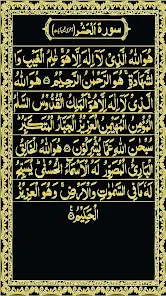 سورة الحشر
هو الله الذي لا اله الا هو علم الغيب و
الشهادة هو الرحمن الرحيم هو الله
الذي لا اله الا هو الملك القدوس السلم
المؤمن المهيمن العزيز الجبار المتكبر
سبحن الله عما يشركون هو الله الخالق
البارئ المصور له الاسماء الحسنى يسبح
له ما في السموت والارض وهو العزيز
الحكيم